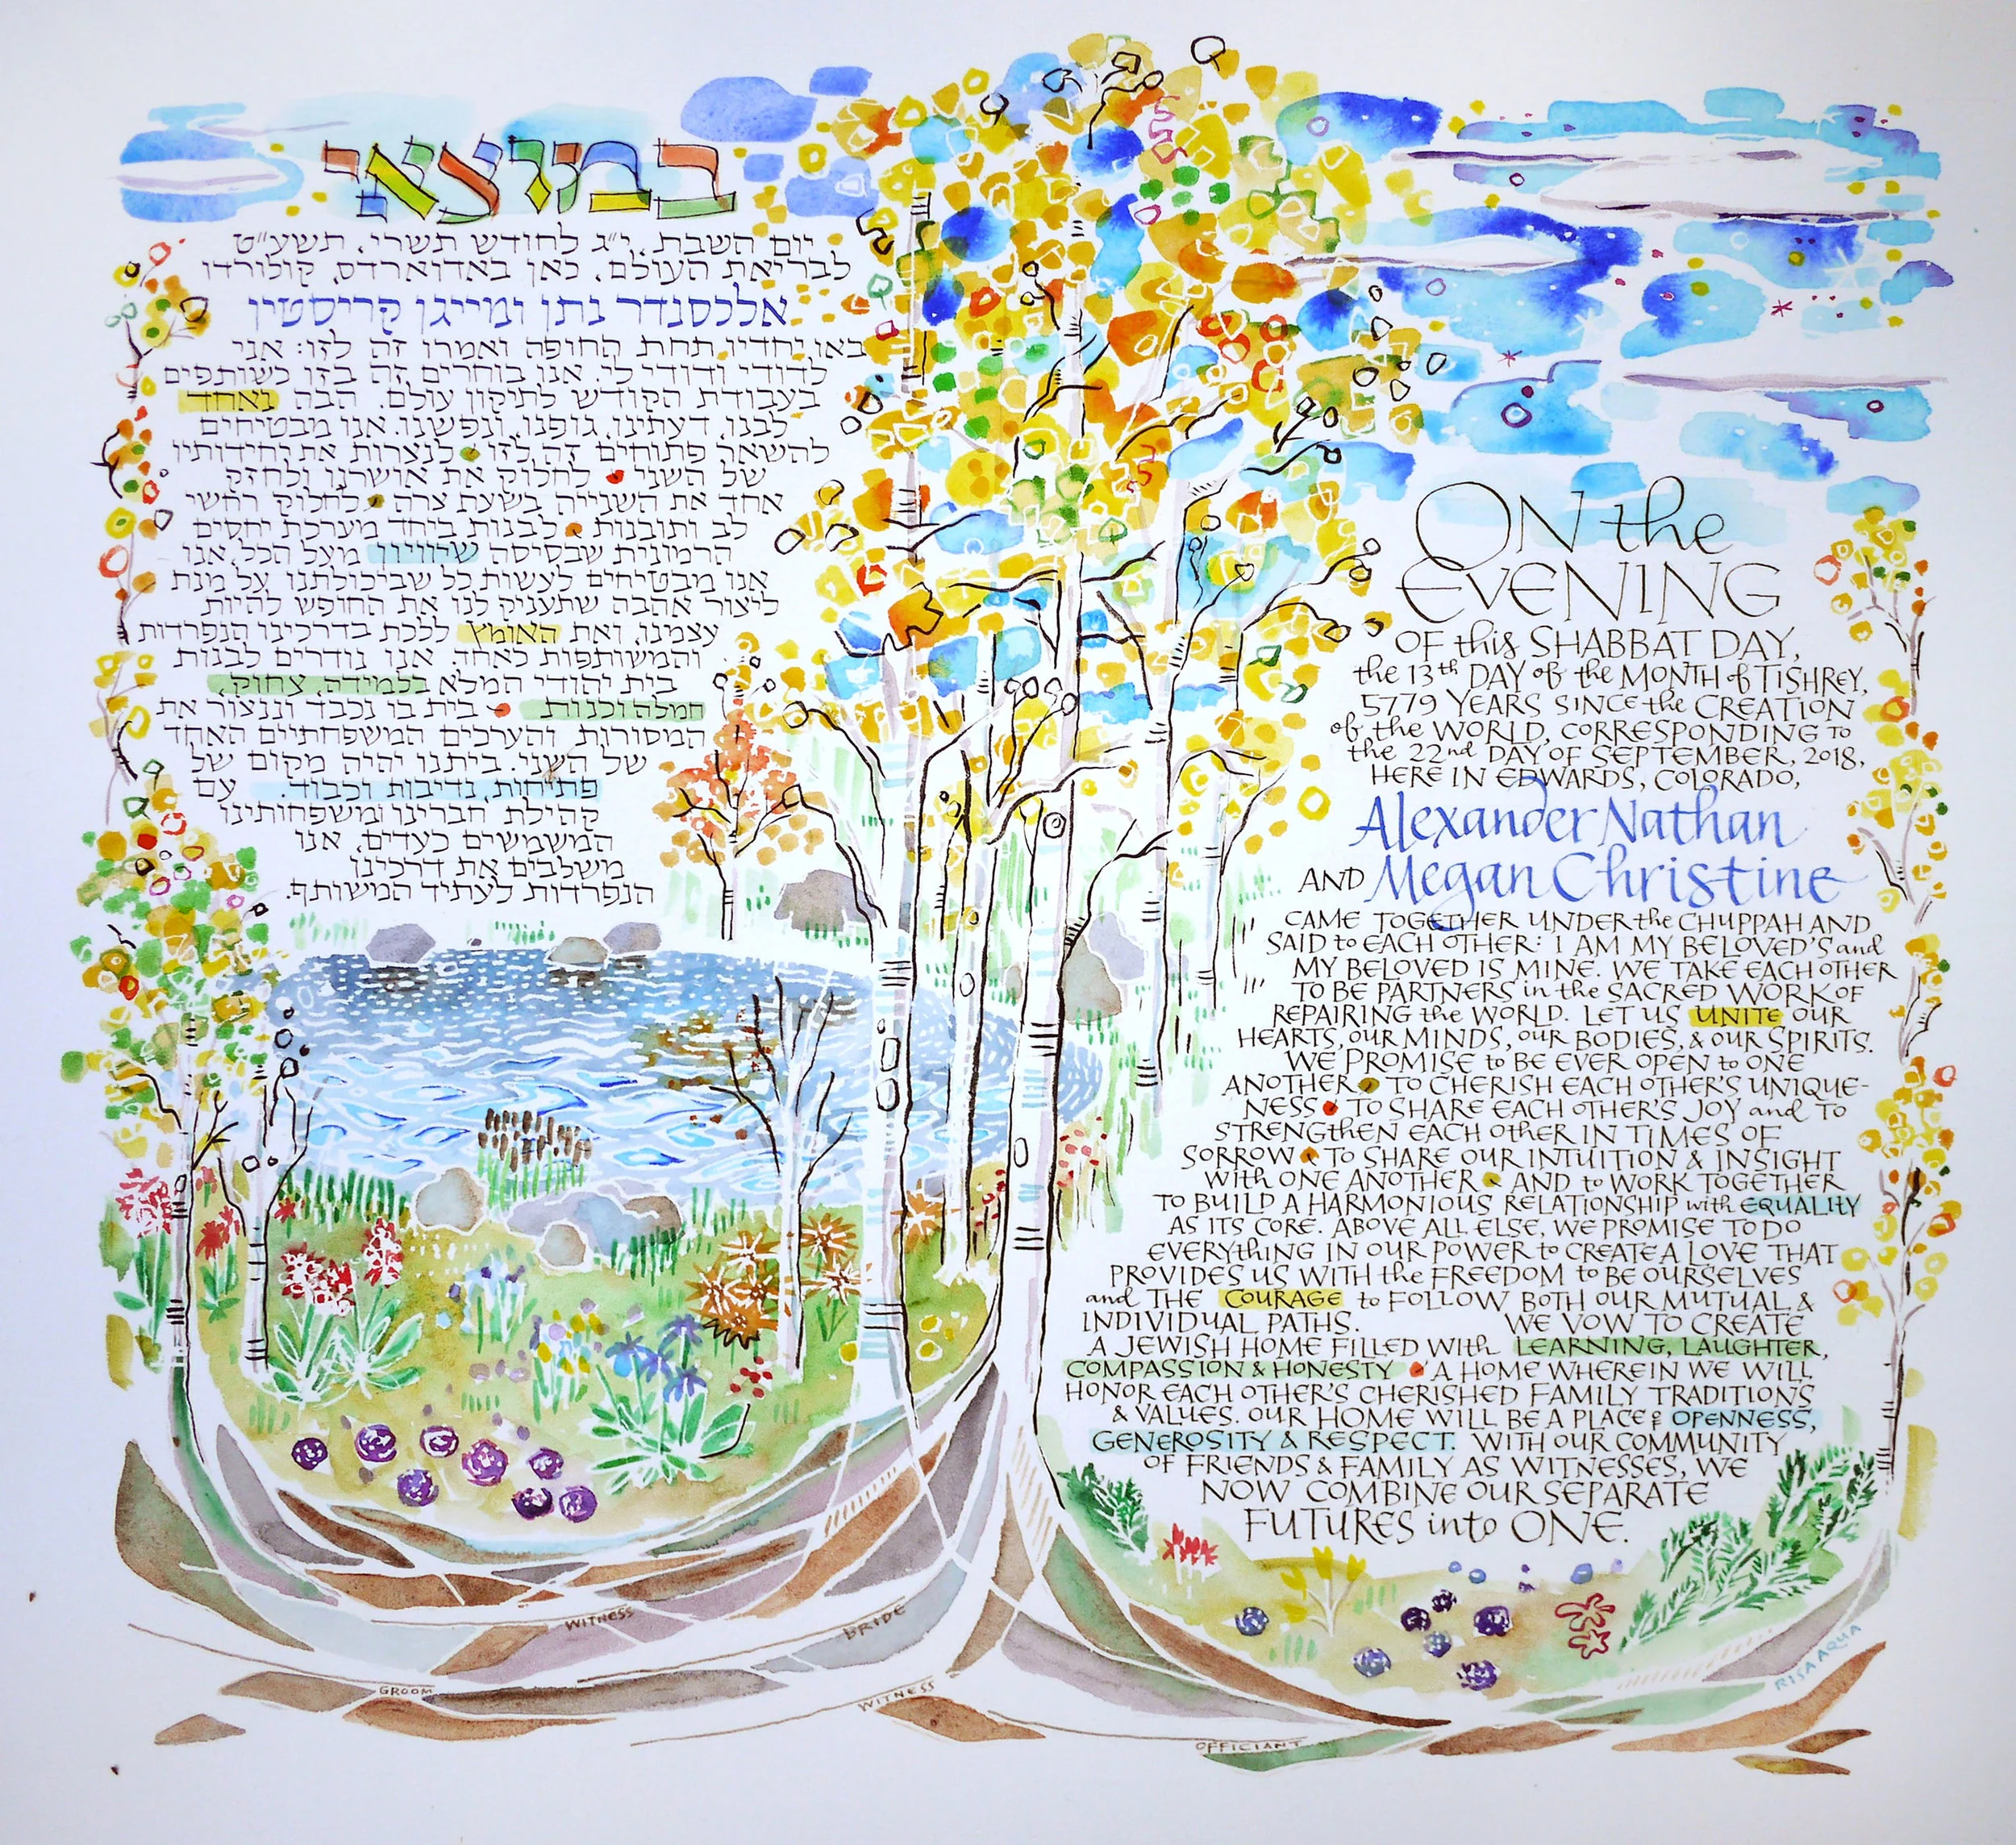 במוצאי
יום השבת, י״ג לחודש תשרי, תשע״ט
לבריאת העולם, כאן באדוארדס, קולורדו
אלכסנדר נתן ומייגן קריסטין
באו יחדיו תחת החופה ואמרו זה לזו: אני
לדודי ודודי לי. אנו בוחרים זה בזו כשותפים
בעבודת הקודש לתיקון עולם. הבה נאחד
לבנו, דעתינו, גופנו, ונפשנו. אנו מבטיחים
להשאר פתוחים זה לזו • לנצרות את יחידותיו
של השני • לחלוק את אושרנו ולחזק
אחד את השנייה בשעת צרה • לחלוק רחשי
לב ותובנות • לבנות ביחד מערכת יחסים
הרמונית שבסיסה שיוויון. מעל הכל, אנו
אנו מבטיחים לעשות כל שביכולתנו על מנת
ליצור אהבה שתעניק לנו את החופש להיות
עצמינו, ואת האומץ ללכת בדרכינו הנפרדות
והמשותפות כאחד. אנו נודרים לבנות
בית יהודי המלא בלמידה, צחוק,
חמלה וכנות • בית בו נכבד וננצור את
המסורות והערכים המשפחתיים האחד
של השני. ביתנו יהיה מקום של
פתיחות, נדיבות וכבוד. עם
קהילת חברינו ומשפחותינו
המשמשים כעדים, אנו
משלבים את דרכינו
הנפרדות לעתיד המשותף.
ON the
EVENING
OF this SHABBAT DAY,
the 13th DAY of the MONTH of TISHREY,
5779 YEARS SINCE the CREATION
of the WORLD, CORRESPONDING TO
the 22nd DAY OF SEPTEMBER, 2018,
HERE IN EDWARDS, COLORADO,
Alexander Nathan
AND Megan Christine
CAME TOGETHER UNDER the CHUPPAH AND
SAID to EACH OTHER: I AM MY BELOVED'S and
MY BELOVED IS MINE. WE TAKE EACH OTHER
TO BE PARTNERS in the SACRED WORK OF
REPAIRING the WORLD. LET US UNITE OUR
HEARTS, OUR MINDS, OUR BODIES, & OUR SPIRITS.
WE PROMISE to BE EVER OPEN to ONE
ANOTHER • TO CHERISH EACH OTHER'S UNIQUE-
NESS • TO SHARE EACH OTHER'S JOY and TO
STRENGTHEN EACH OTHER IN TIMES OF
SORROW • TO SHARE OUR INTUITION & INSIGHT
WITH ONE ANOTHER • AND to WORK TOGETHER
TO BUILD A HARMONIOUS RELATIONSHIP with EQUALITY
AS ITS CORE. ABOVE ALL ELSE, WE PROMISE TO DO
EVERYTHING IN OUR POWER to CREATE A LOVE THAT
PROVIDES US WITH the FREEDOM to BE OURSELVES
and THE COURAGE to FOLLOW BOTH OUR MUTUAL &
INDIVIDUAL PATHS. WE VOW TO CREATE
A JEWISH HOME FILLED WITH LEARNING, LAUGHTER,
COMPASSION & HONESTY • A HOME WHEREIN WE WILL
HONOR EACH OTHER'S CHERISHED FAMILY TRADITIONS
& VALUES. OUR HOME WILL BE A PLACE of OPENNESS,
GENEROSITY & RESPECT. WITH OUR COMMUNITY
OF FRIENDS & FAMILY AS WITNESSES, WE
NOW COMBINE OUR SEPARATE
FUTURES into ONE.
WITNESS
BRIDE
GROOM
WITNESS
OFFICIANT
RISA AQUA